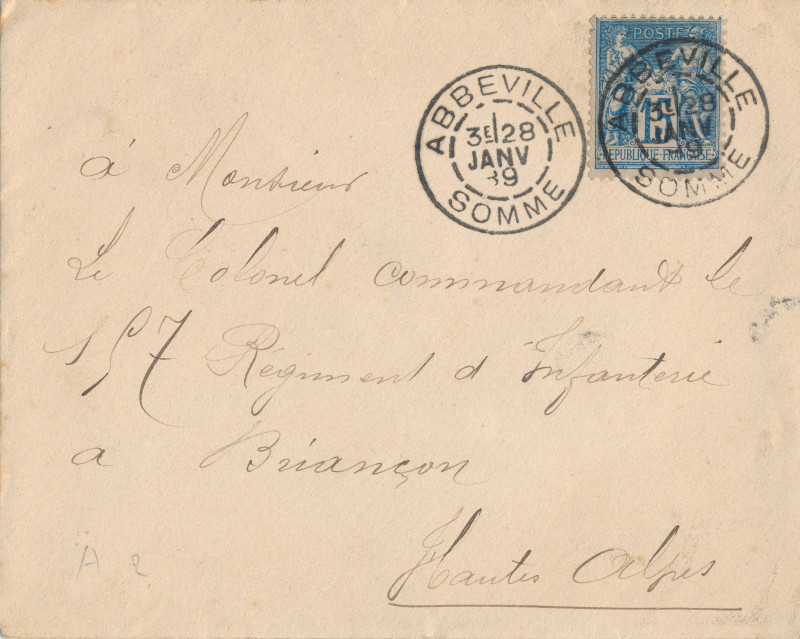 POSTES
15
REPUBLIQUE FRANÇAISE
ABBEVILLE
3E 28
JANV
89
SOMME
ABBEVILLE
3E 28
JANV
89
SOMME
à Monsieur
Le Colonel commandant le
157 Régiment d'Infanterie
a Briançon
Hautes Alpes
A 2